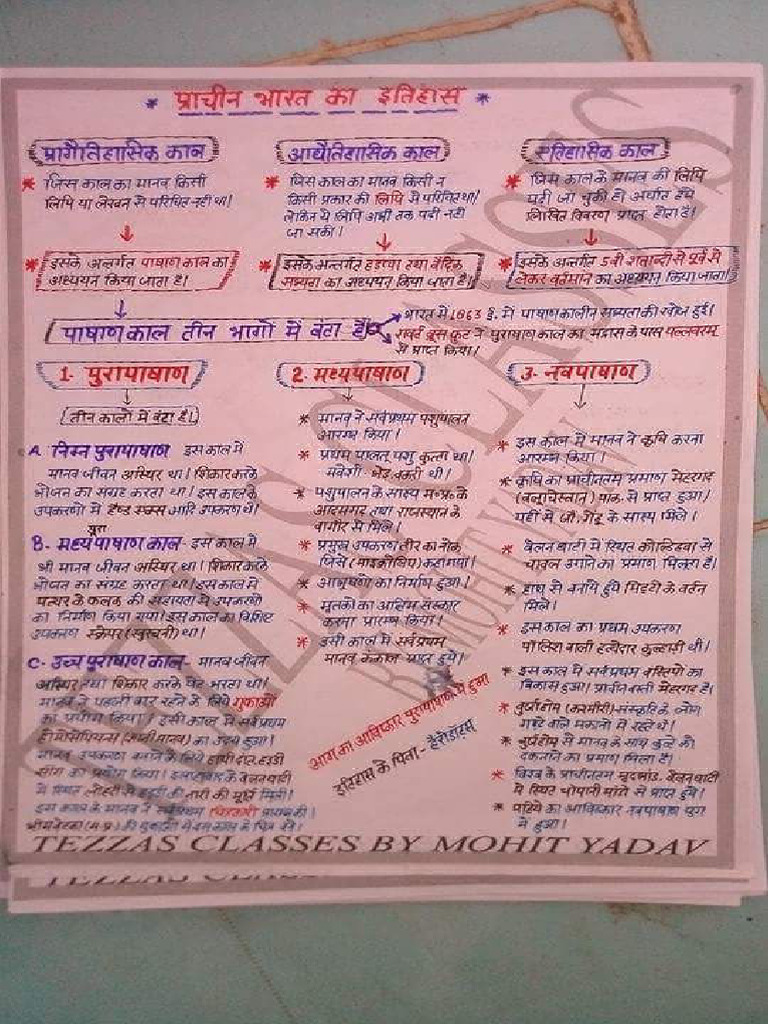 * प्राचीन भारत का इतिहास *
प्रागैतिहासिक काल
* जिस काल का मानव किसी
लिपि या लेखन से परिचित नहीं था।
* इसके अन्तर्गत पाषाण काल का
अध्ययन किया जाता है।
आद्यैतिहासिक काल
* जिस काल का मानव किसी न
किसी प्रकार की लिपि से परिचित था।
लेकिन ये लिपि अभी तक पढ़ी नहीं
जा सकी।
* इसके अन्तर्गत हड़प्पा तथा वैदिक
सभ्यता का अध्ययन किया जाता है।
ऐतिहासिक काल
* जिस काल के मानव की लिपि
पढ़ी जा चुकी हो अर्थात हमें
लिखित विवरण प्राप्त होता है।
* इसके अन्तर्गत 5वीं शताब्दी से पूर्व से
लेकर वर्तमान का अध्ययन किया जाता।
पाषाण काल तीन भागों में बंटा है।
भारत में 1863 ई. में पाषाण कालीन सभ्यता की खोज हुई।
राबर्ट ब्रूस फ्रूट ने पुरापाषाण काल का मद्रास के पास पल्लवरम्
से प्राप्त किया।
1- पुरापाषाण
(तीन कालों में बंटा है।)
A. निम्न पुरापाषाण इस काल में
मानव जीवन अस्थिर था। शिकार करके
भोजन का संग्रह करता था। इस काल के
उपकरणों में हैण्ड एक्स आदि उपकरण थे।
पुरा
B- मध्यपाषाण काल- इस काल में
भी मानव जीवन अस्थिर था। शिकार करके
भोजन का संग्रह करता था। इस काल में
पत्थर के फलक की सहायता से उपकरणों
का निर्माण किया गया। इस काल का विशिष्ट
उपकरण स्क्रेपर (खुरचनी) था।
C- उच्च पुरापाषाण काल- मानव जीवन
अस्थिर तथा शिकार करके पेट भरता था।
मानव ने पहली बार रहने के लिये गुफाओं
का प्रयोग किया। इसी काल में सर्वप्रथम
होमोसेपियन्स (मानव) का उदय हुआ।
मानव उपकरण बनाने के लिये हाथी दांत, हड्डी
सींग का प्रयोग किया। इलाहाबाद के बेलन घाटी
में स्थित लोहदा से हड्डी की नारी की मूर्ति मिली।
इस काल के मानव ने सर्वप्रथम चित्रकारी प्रारम्भ की।
भीमबेटका (म.प्र.) की गुफाओं में इस काल के चित्र मिले।
2- मध्यपाषाण
* मानव ने सर्वप्रथम पशुपालन
आरम्भ किया।
* प्रथम पालतू पशु कुत्ता था।
मवेशी- भेड़ बकरी थी।
* पशुपालन के साक्ष्य म.प्र. के
आदमगढ़ तथा राजस्थान के
बागौर से मिले।
* प्रमुख उपकरण तीर का नोक
जिसे (माइक्रोलिथ) कहा गया।
* आभूषण का निर्माण हुआ।
* मृतकों का अन्तिम संस्कार
करना प्रारम्भ किया।
* इसी काल में सर्वप्रथम
मानव कंकाल प्राप्त हुये।
आग का आविष्कार पुरापाषाण में हुआ
इतिहास के पिता - हेरोडोट्स
3- नवपाषाण
* इस काल में मानव ने कृषि करना
आरम्भ किया।
* कृषि का प्राचीनतम प्रमाण मेहरगढ़
(बलूचिस्तान) पाक. से प्राप्त हुआ।
यहीं से जौ, गेंहू के साक्ष्य मिले।
* बेलन घाटी में स्थित कोल्डिहवा से
चावल उगाने का प्रमाण मिलता है।
* हाथ से बनाये हुये मिट्टी के बर्तन
मिले।
* इस काल का प्रथम उपकरण
पॉलिश वाली हत्थेदार कुल्हाड़ी थी।
* इस काल में सर्वप्रथम बस्तियों का
विकास हुआ। प्राचीन बस्ती मेहरगढ़ है।
* बुर्जहोम (कश्मीरी) संस्कृति के लोग
गड्ढे वाले मकानों में रहते थे।
* बुर्जहोम से मानव के साथ कुत्ते को
दफनाने का प्रमाण मिला है।
* विश्व के प्राचीनतम मृदभांड, बेलन घाटी
में स्थित चोपानी मांडो से प्राप्त हुये।
* पहिये का आविष्कार नवपाषाण युग
में हुआ।
TEZZAS CLASSES
BY MOHIT YADAV
TEZZAS CLASSES BY MOHIT YADAV